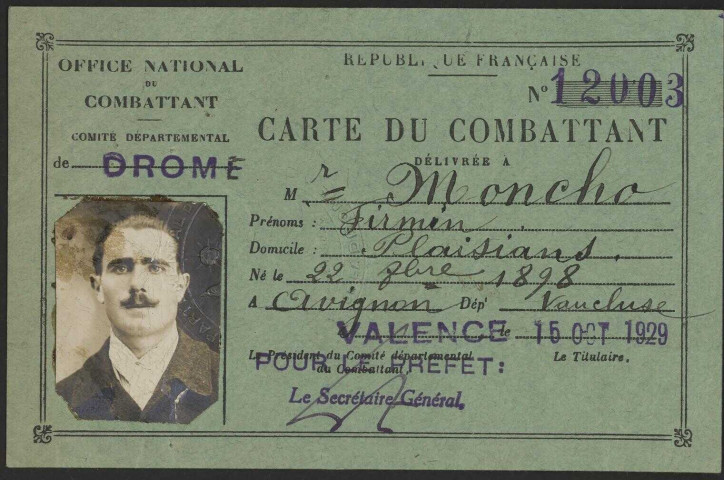 OFFICE NATIONAL
DU
COMBATTANT
COMITÉ DÉPARTEMENTAL
de DROME
RÉPUBLIQUE FRANÇAISE
N° 12003
CARTE DU COMBATTANT
DÉLIVRÉE A
M r Moncho
Prénoms : Firmin
Domicile : Plaisians.
Né le 22 9bre 1898
A Avignon Dépt Vaucluse
VALENCE le 15 OCT 1929
Le Président du Comité départemental
du Combattant,
Le Titulaire.
POUR LE PREFET:
Le Secrétaire Général,